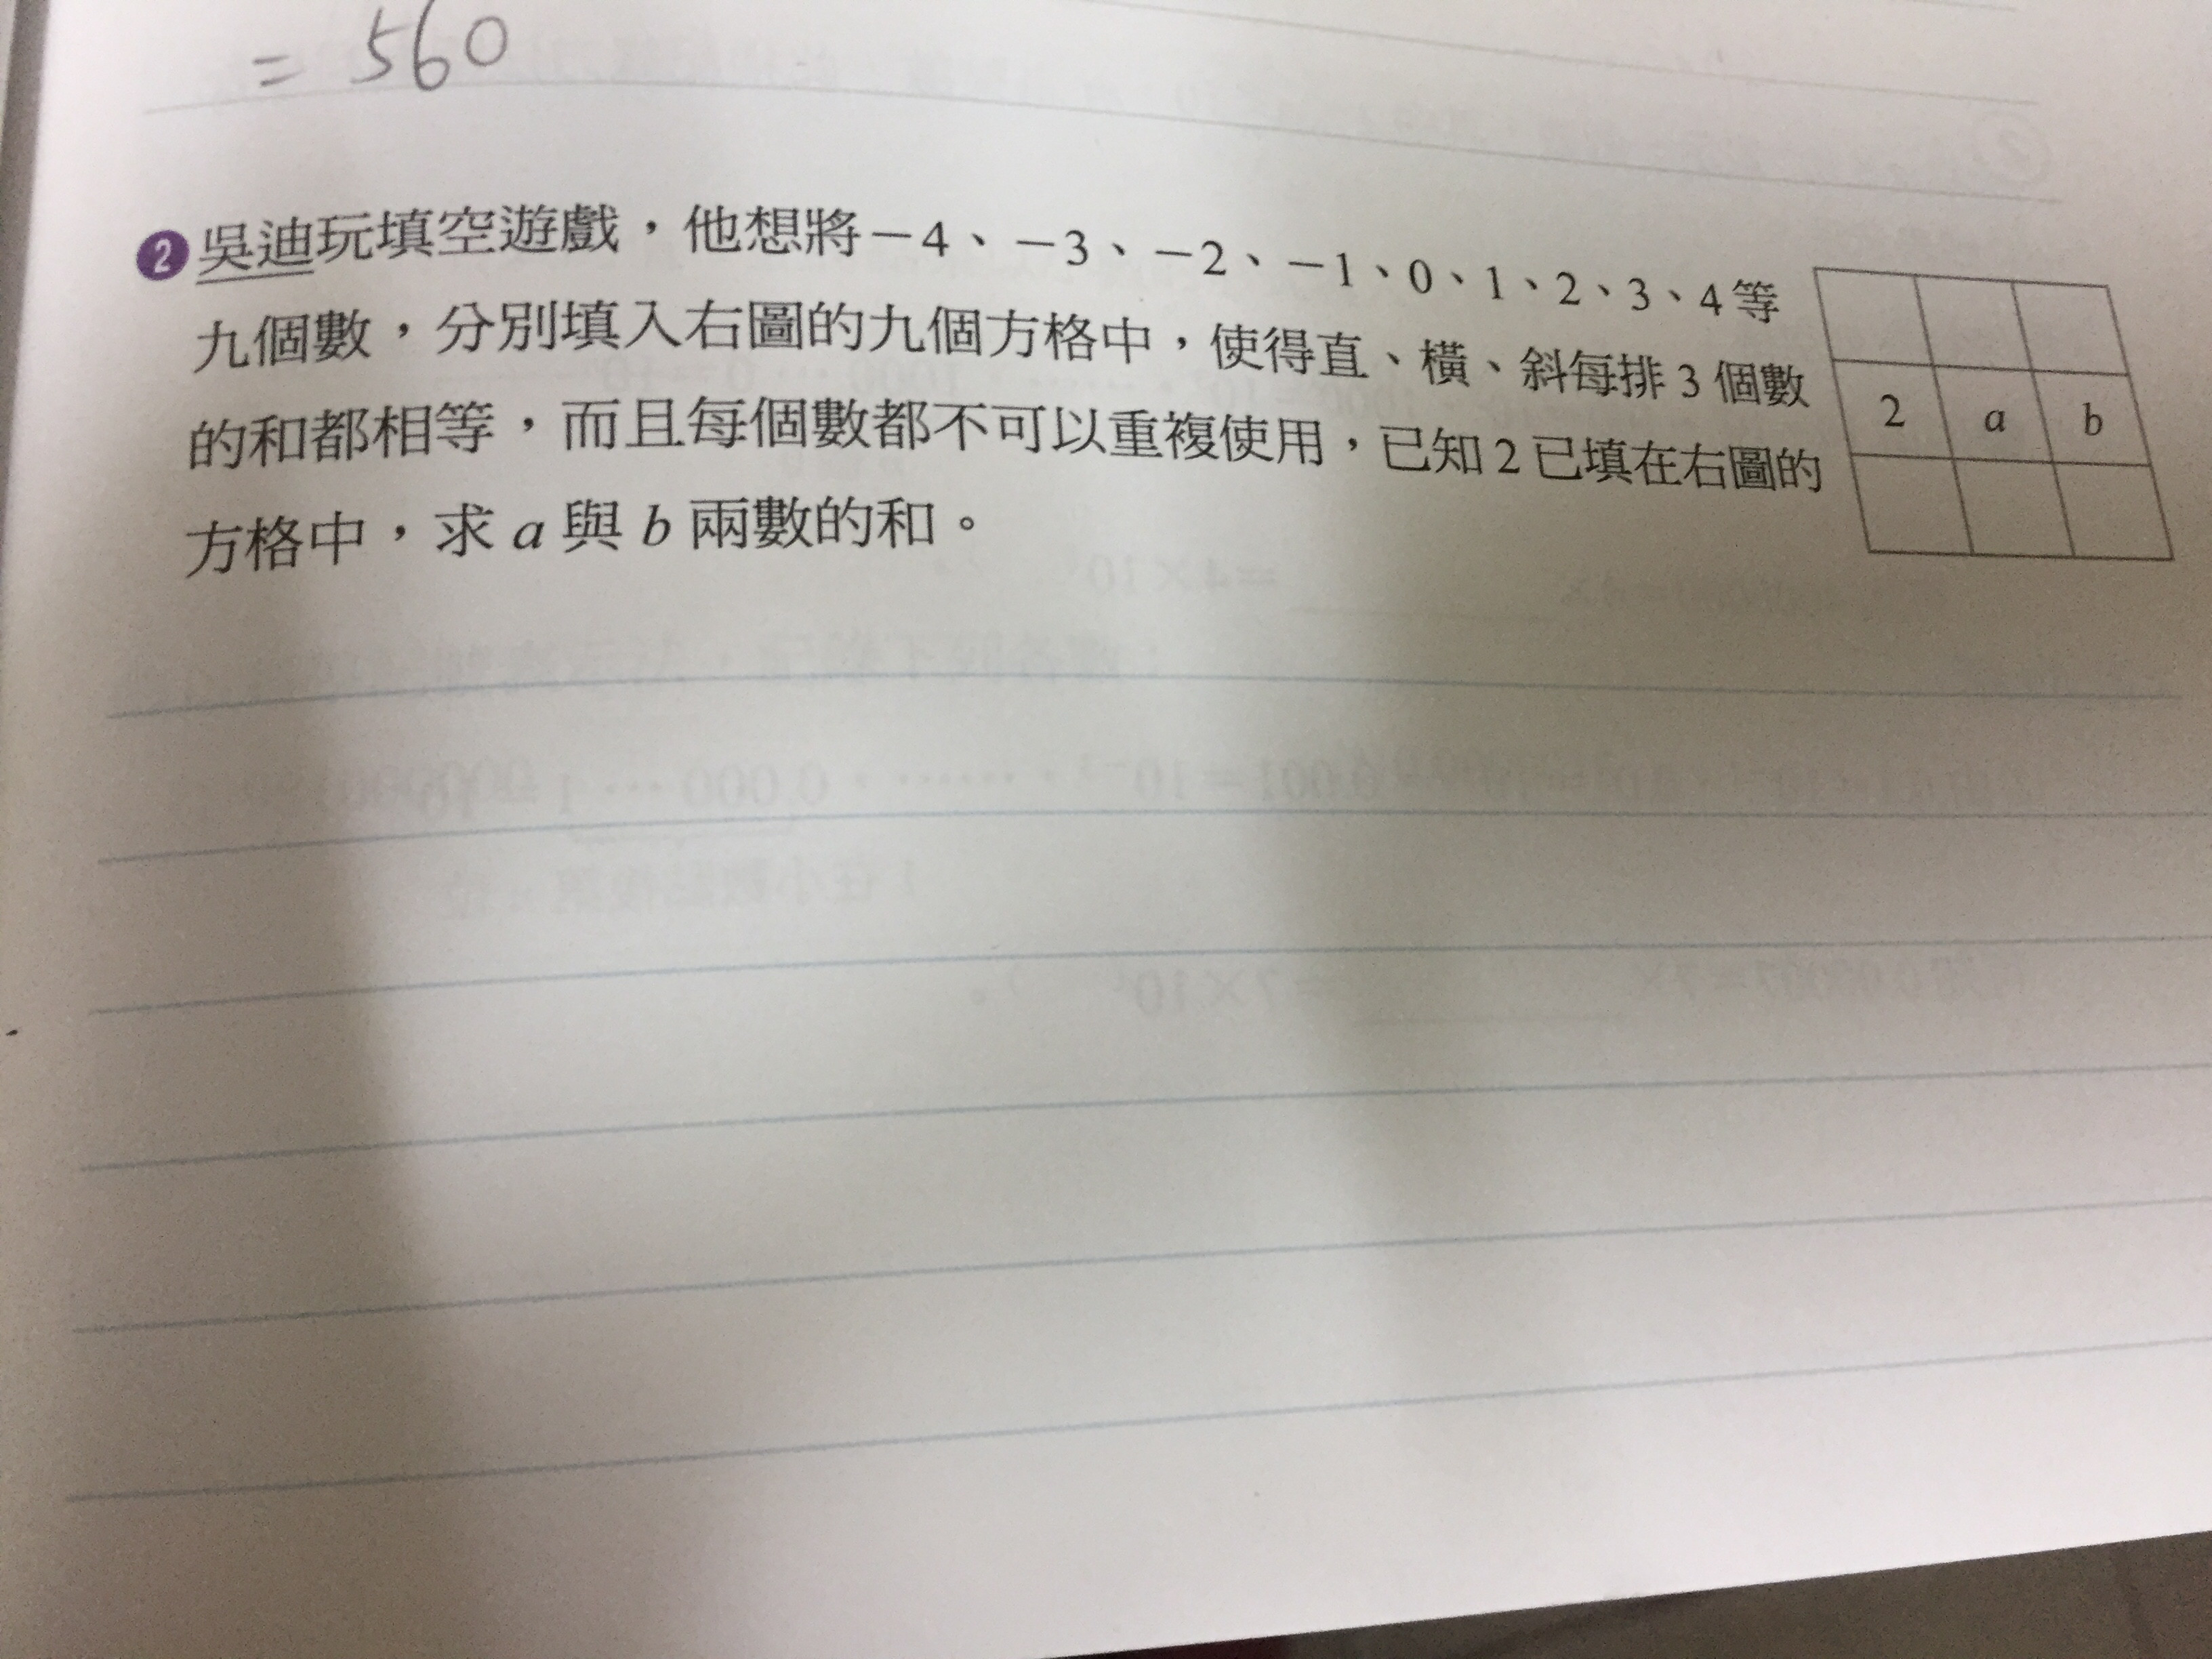 = 560
2 吳迪玩填空遊戲，他想將－4、－3、－2、－1、0、1、2、3、4等
九個數，分別填入右圖的九個方格中，使得直、橫、斜每排3個數
的和都相等，而且每個數都不可以重複使用，已知2已填在右圖的
方格中，求a與b兩數的和。
2 a b